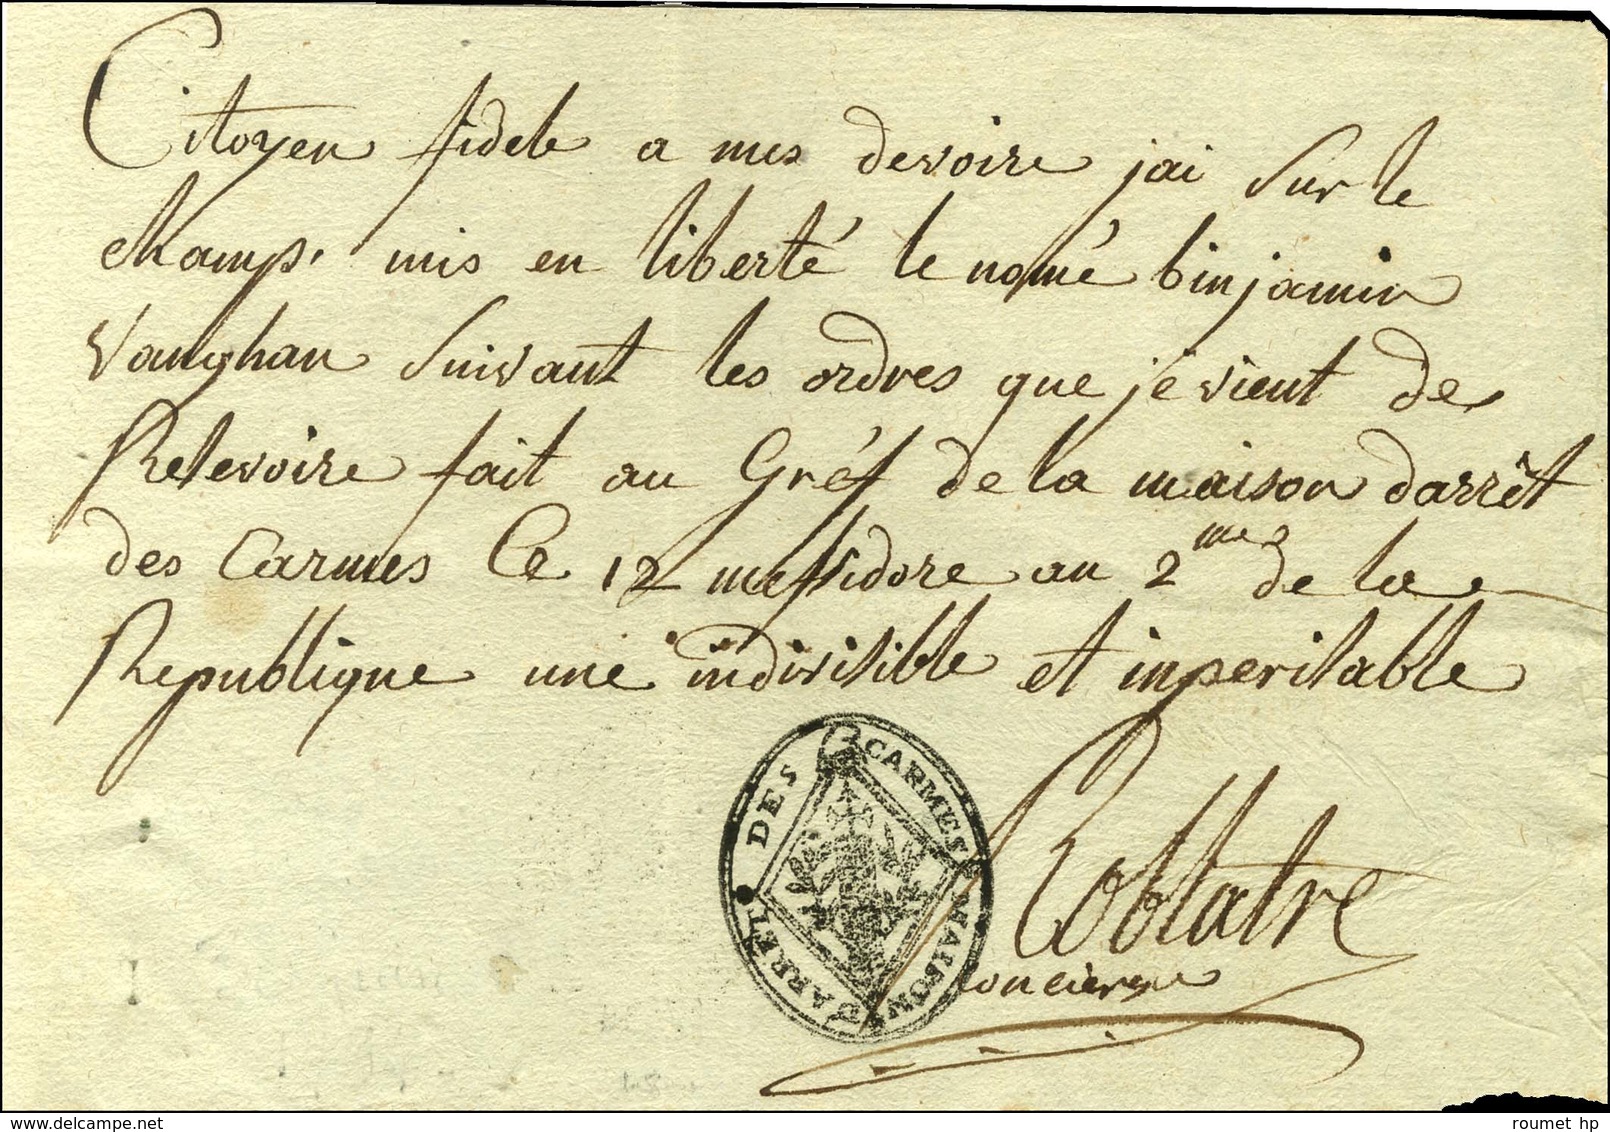 Citoyen fidele a mes devoire jai sur le
chamPs. mis en liberté le nomé binjamin
vaughan suivant les ordres que je vient de
Relevoire fait au Gréf de la maison darrêt
des Carmes Ce 12 messidore an 2me de la
Republique une indivisible et inperisable
MAISON D'ARRET DES CARMES
Roblatre
concierge
roumet hp